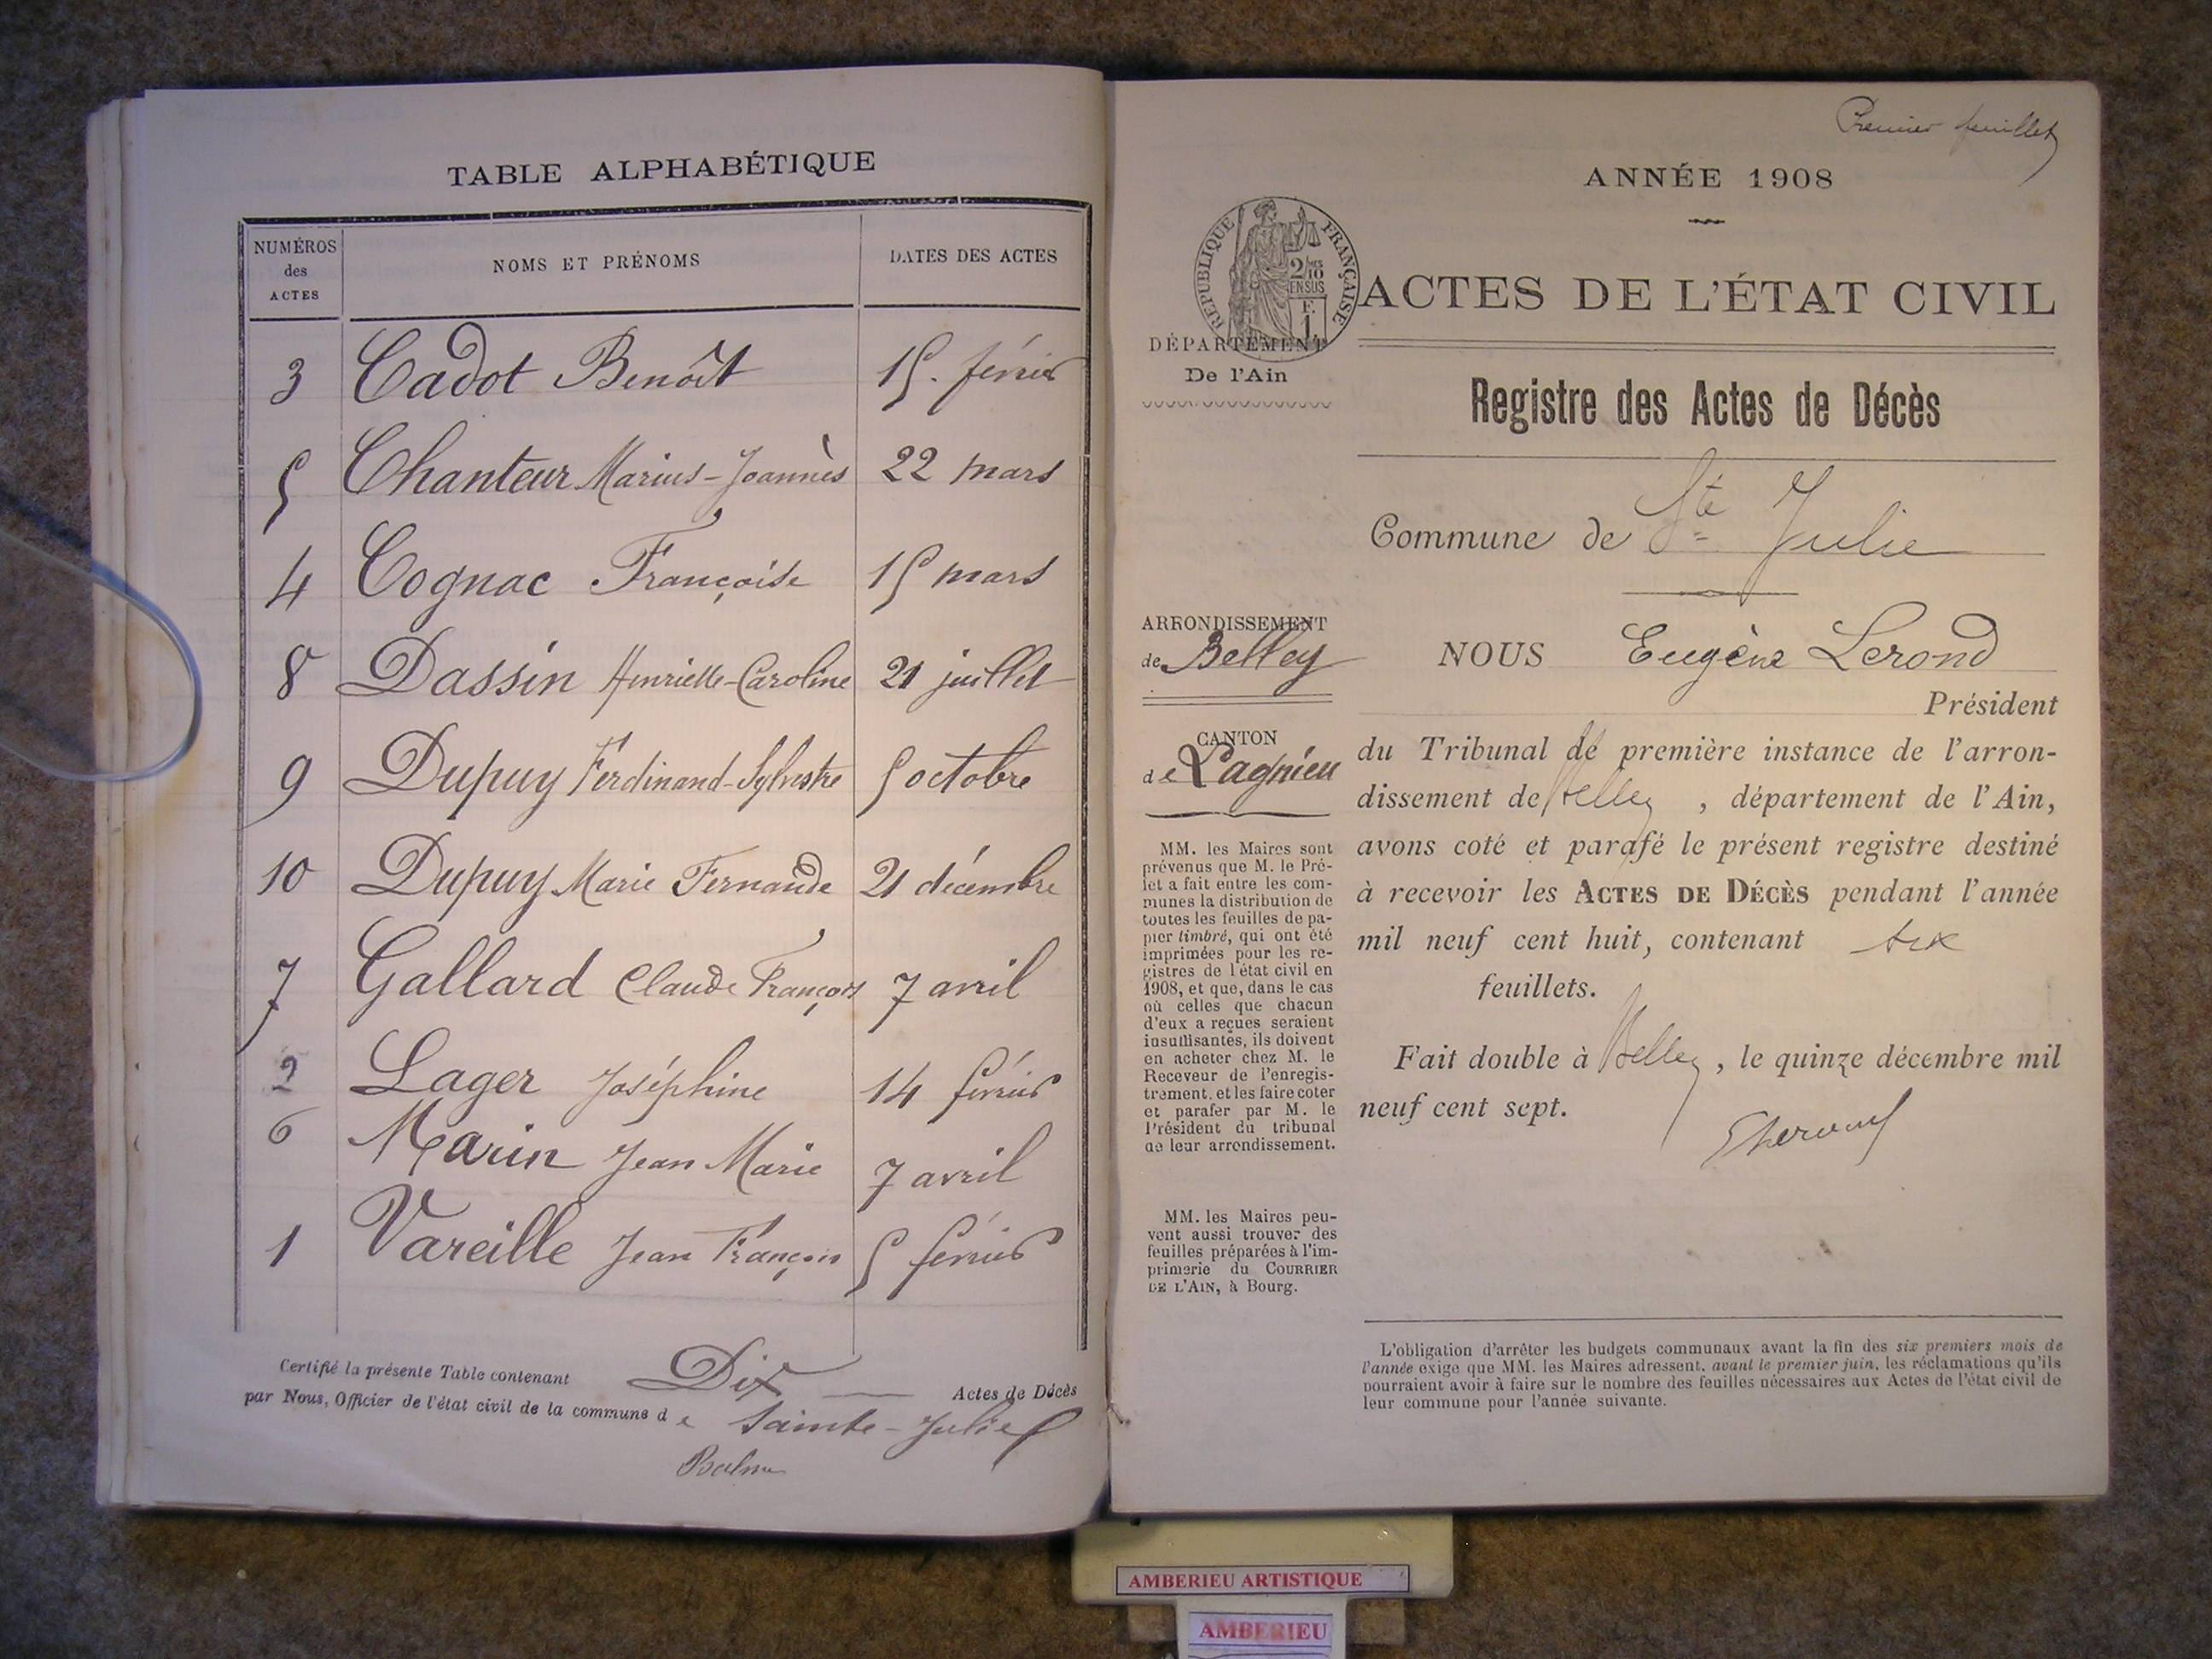 TABLE ALPHABÉTIQUE
NUMÉROS des ACTES NOMS ET PRÉNOMS DATES DES ACTES
3 Cadot Benoît 15. février
5 Chanteur Marius-Joannès 22 mars
4 Cognac Françoise 15 mars
8 Dassin Henriette-Caroline 21 juillet
9 Dupuy Ferdinand-Sylvestre 5 octobre
10 Dupuy Marie Fernande 21 décembre
7 Gallard Claude François 7 avril
2 Lager Joséphine 14 février
6 Marin Jean Marie 7 avril
1 Vareille Jean François 5 février
Certifié la présente Table contenant Dix Actes de Décès
par Nous, Officier de l'état civil de la commune de Sainte-Julie
Premier feuillet
ANNÉE 1908
RÉPUBLIQUE FRANÇAISE
2/10
EN SUS
F.
1
ACTES DE L'ÉTAT CIVIL
DÉPARTEMENT
De l'Ain
Registre des Actes de Décès
Commune de Ste Julie
ARRONDISSEMENT
de Belley
CANTON
de Lagnieu
MM. les Maires sont
prévenus que M. le Pré-
fet a fait entre les com-
munes la distribution de
toutes les feuilles de pa-
pier timbré, qui ont été
imprimées pour les re-
gistres de l'état civil en
1908, et que, dans le cas
où celles que chacun
d'eux a reçues seraient
insuffisantes, ils doivent
en acheter chez M. le
Receveur de l'enregis-
trement, et les faire coter
et parafer par M. le
Président du tribunal
de leur arrondissement.
MM. les Maires peu-
vent aussi trouver des
feuilles préparées à l'im-
primerie du COURRIER
DE L'AIN, à Bourg.
NOUS Eugène Lerond
Président
du Tribunal de première instance de l'arron-
dissement de Belley, département de l'Ain,
avons coté et parafé le présent registre destiné
à recevoir les ACTES DE DÉCÈS pendant l'année
mil neuf cent huit, contenant six
feuillets.
Fait double à Belley, le quinze décembre mil
neuf cent sept.
L'obligation d'arrêter les budgets communaux avant la fin des six premiers mois de
l'année exige que MM. les Maires adressent, avant le premier juin, les réclamations qu'ils
pourraient avoir à faire sur le nombre des feuilles nécessaires aux Actes de l'état civil de
leur commune pour l'année suivante.
AMBERIEU ARTISTIQUE
AMBERIEU